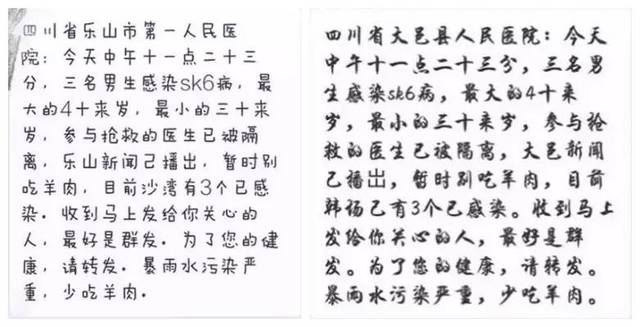 四川省乐山市第一人民医
院：今天中午十一点二十三
分，三名男生感染sk6病，最
大的4十来岁，最小的三十来
岁，参与抢救的医生已被隔
离，乐山新闻已播出，暂时别
吃羊肉，目前沙湾有3个已感
染．收到马上发给你关心的
人，最好是群发．为了您的健
康，请转发．暴雨水污染严
重，少吃羊肉．
四川省大邑县人民医院：今天
中午十一点二十三分，三名男
生感染sk6病，最大的4十来
岁，最小的三十来岁，参与抢
救的医生已被隔离，大邑新闻
已播出，暂时别吃羊肉，目前
韩场已有3个已感染。收到马上
发给你关心的人，最好是群
发。为了您的健康，请转发。
暴雨水污染严重，少吃羊肉。